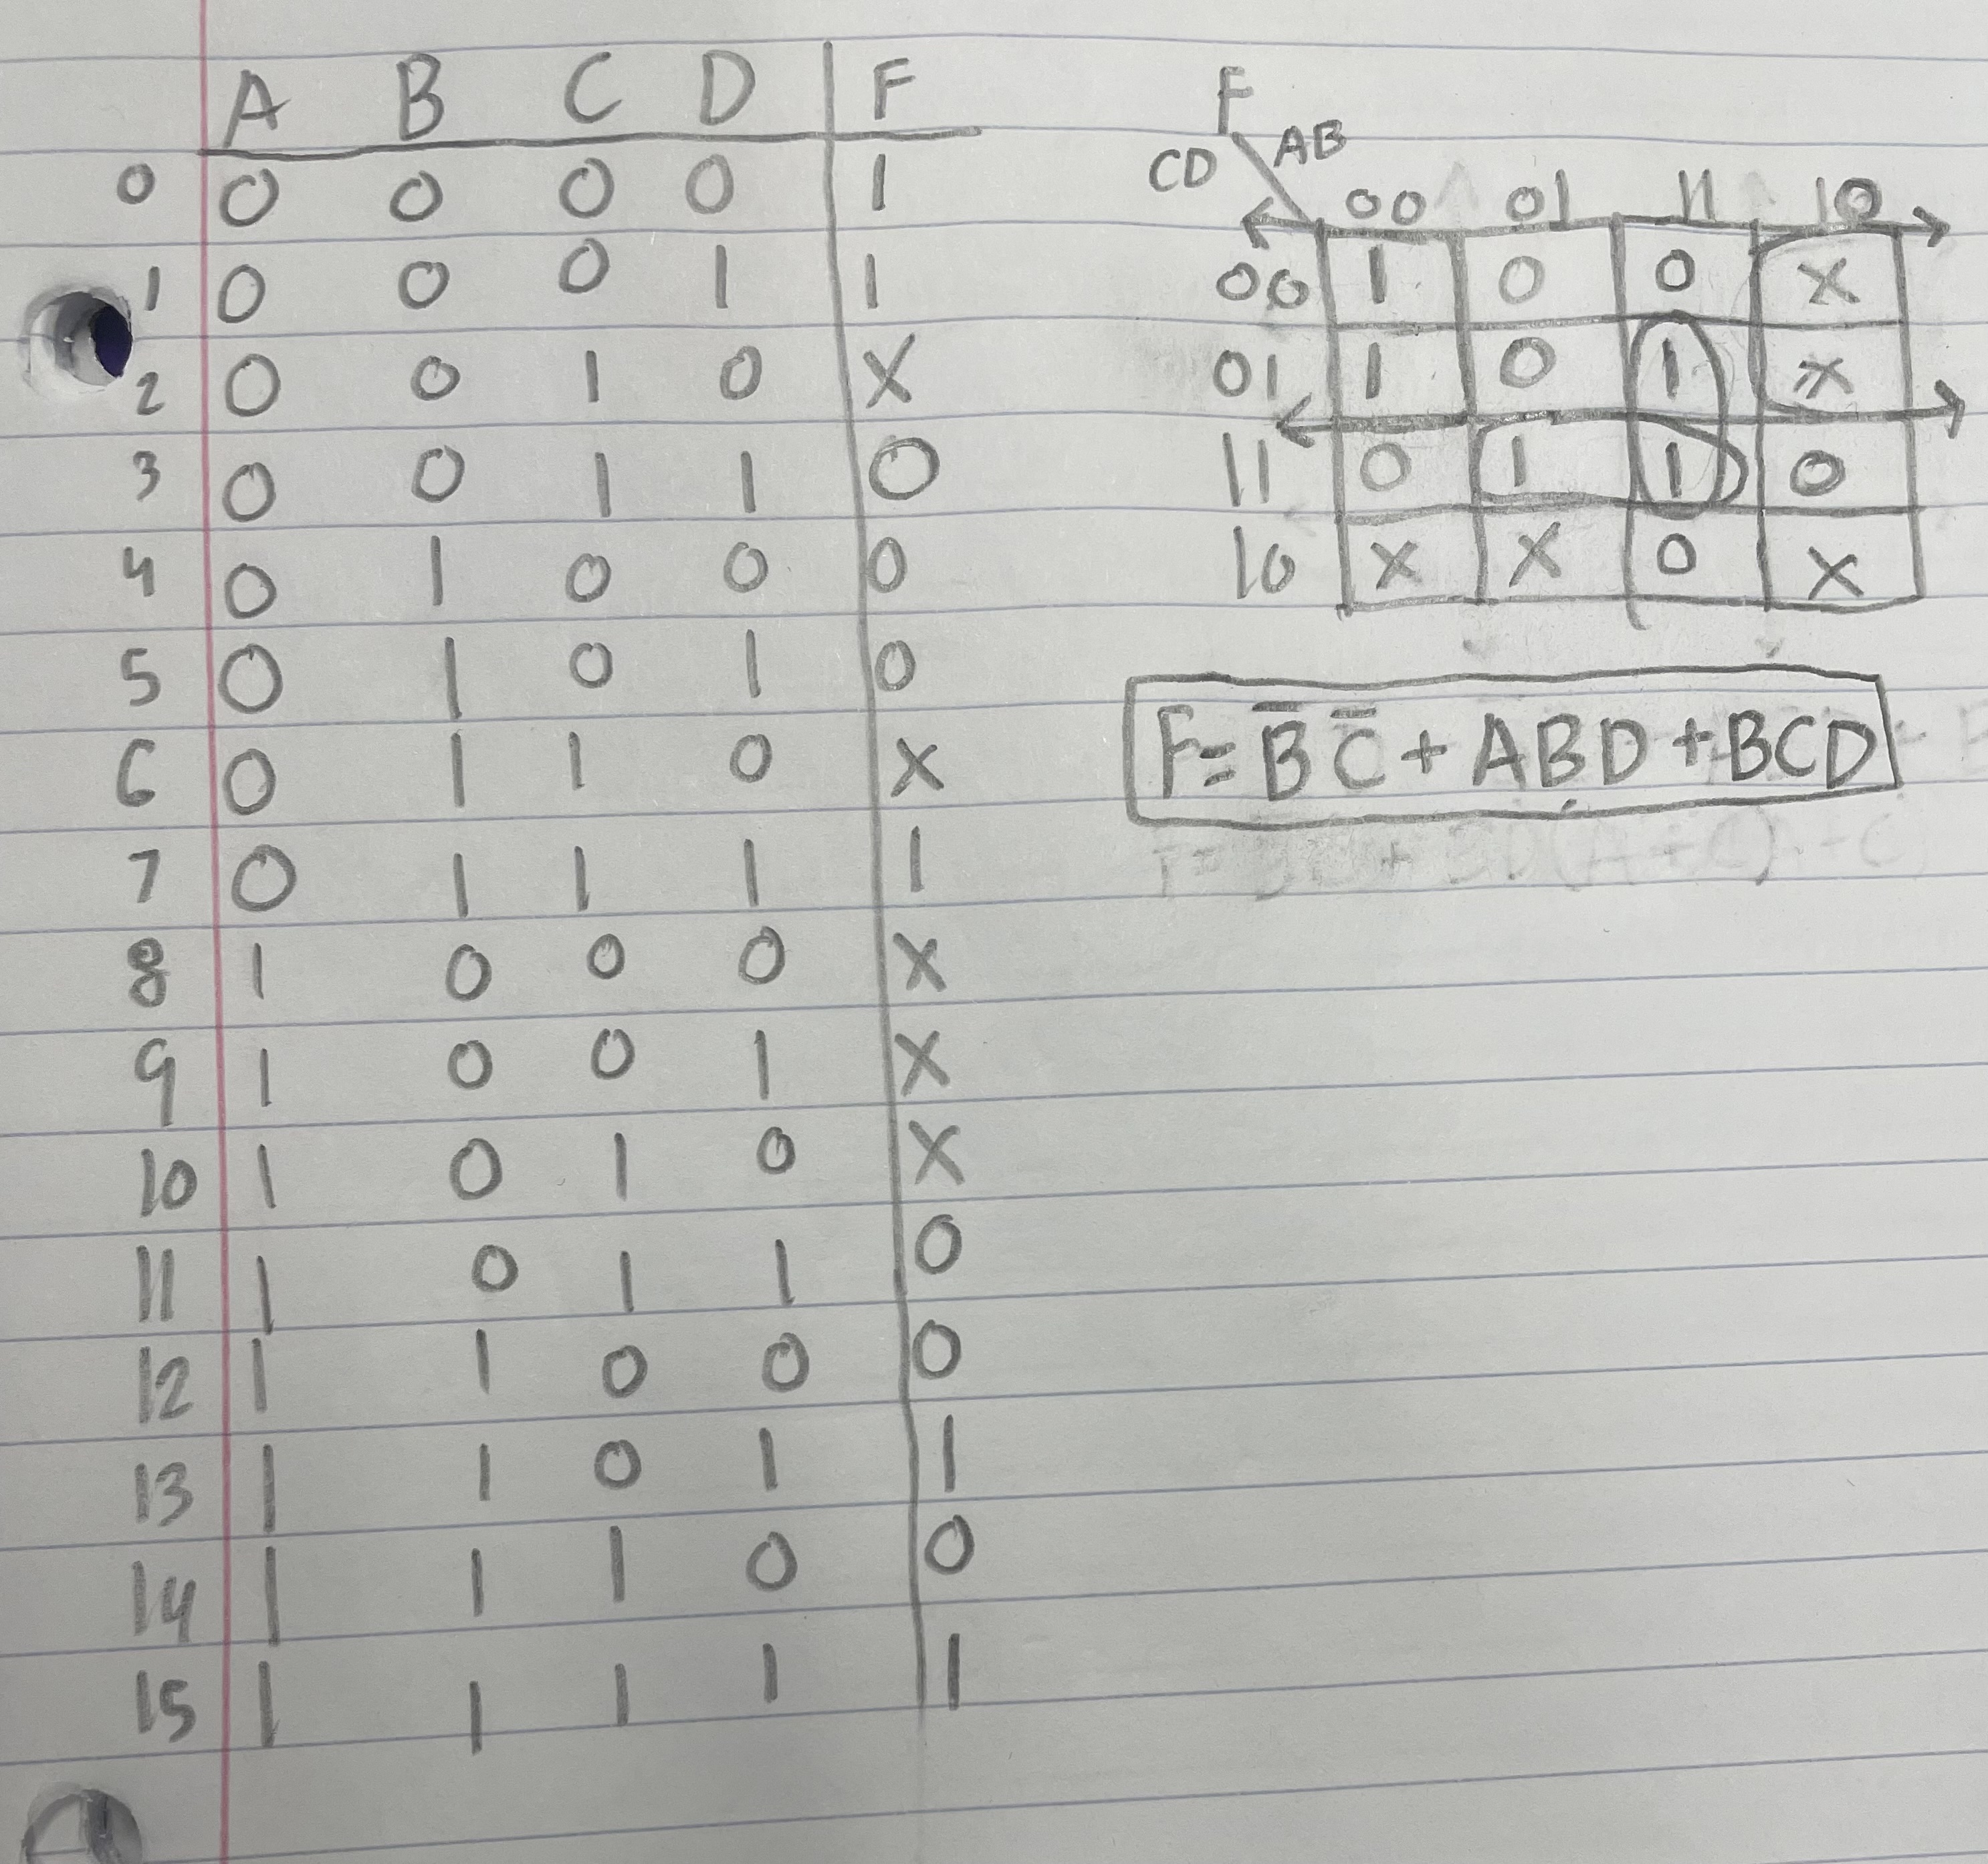 A B C D F
0 0 0 0 0 1
1 0 0 0 1 1
2 0 0 1 0 X
3 0 0 1 1 0
4 0 1 0 0 0
5 0 1 0 1 0
6 0 1 1 0 X
7 0 1 1 1 1
8 1 0 0 0 X
9 1 0 0 1 X
10 1 0 1 0 X
11 1 0 1 1 0
12 1 1 0 0 0
13 1 1 0 1 1
14 1 1 1 0 0
15 1 1 1 1 1
F
CD AB
00 01 11 10
00 1 0 0 X
01 1 0 1 X
11 0 1 1 0
10 X X 0 X
F = B̅ C̅ + ABD + BCD